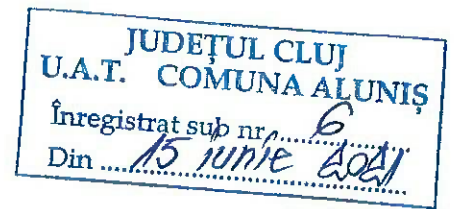 JUDEȚUL CLUJ
U.A.T. COMUNA ALUNIȘ
Înregistrat sub nr........6........
Din .....15 iunie 2021.....